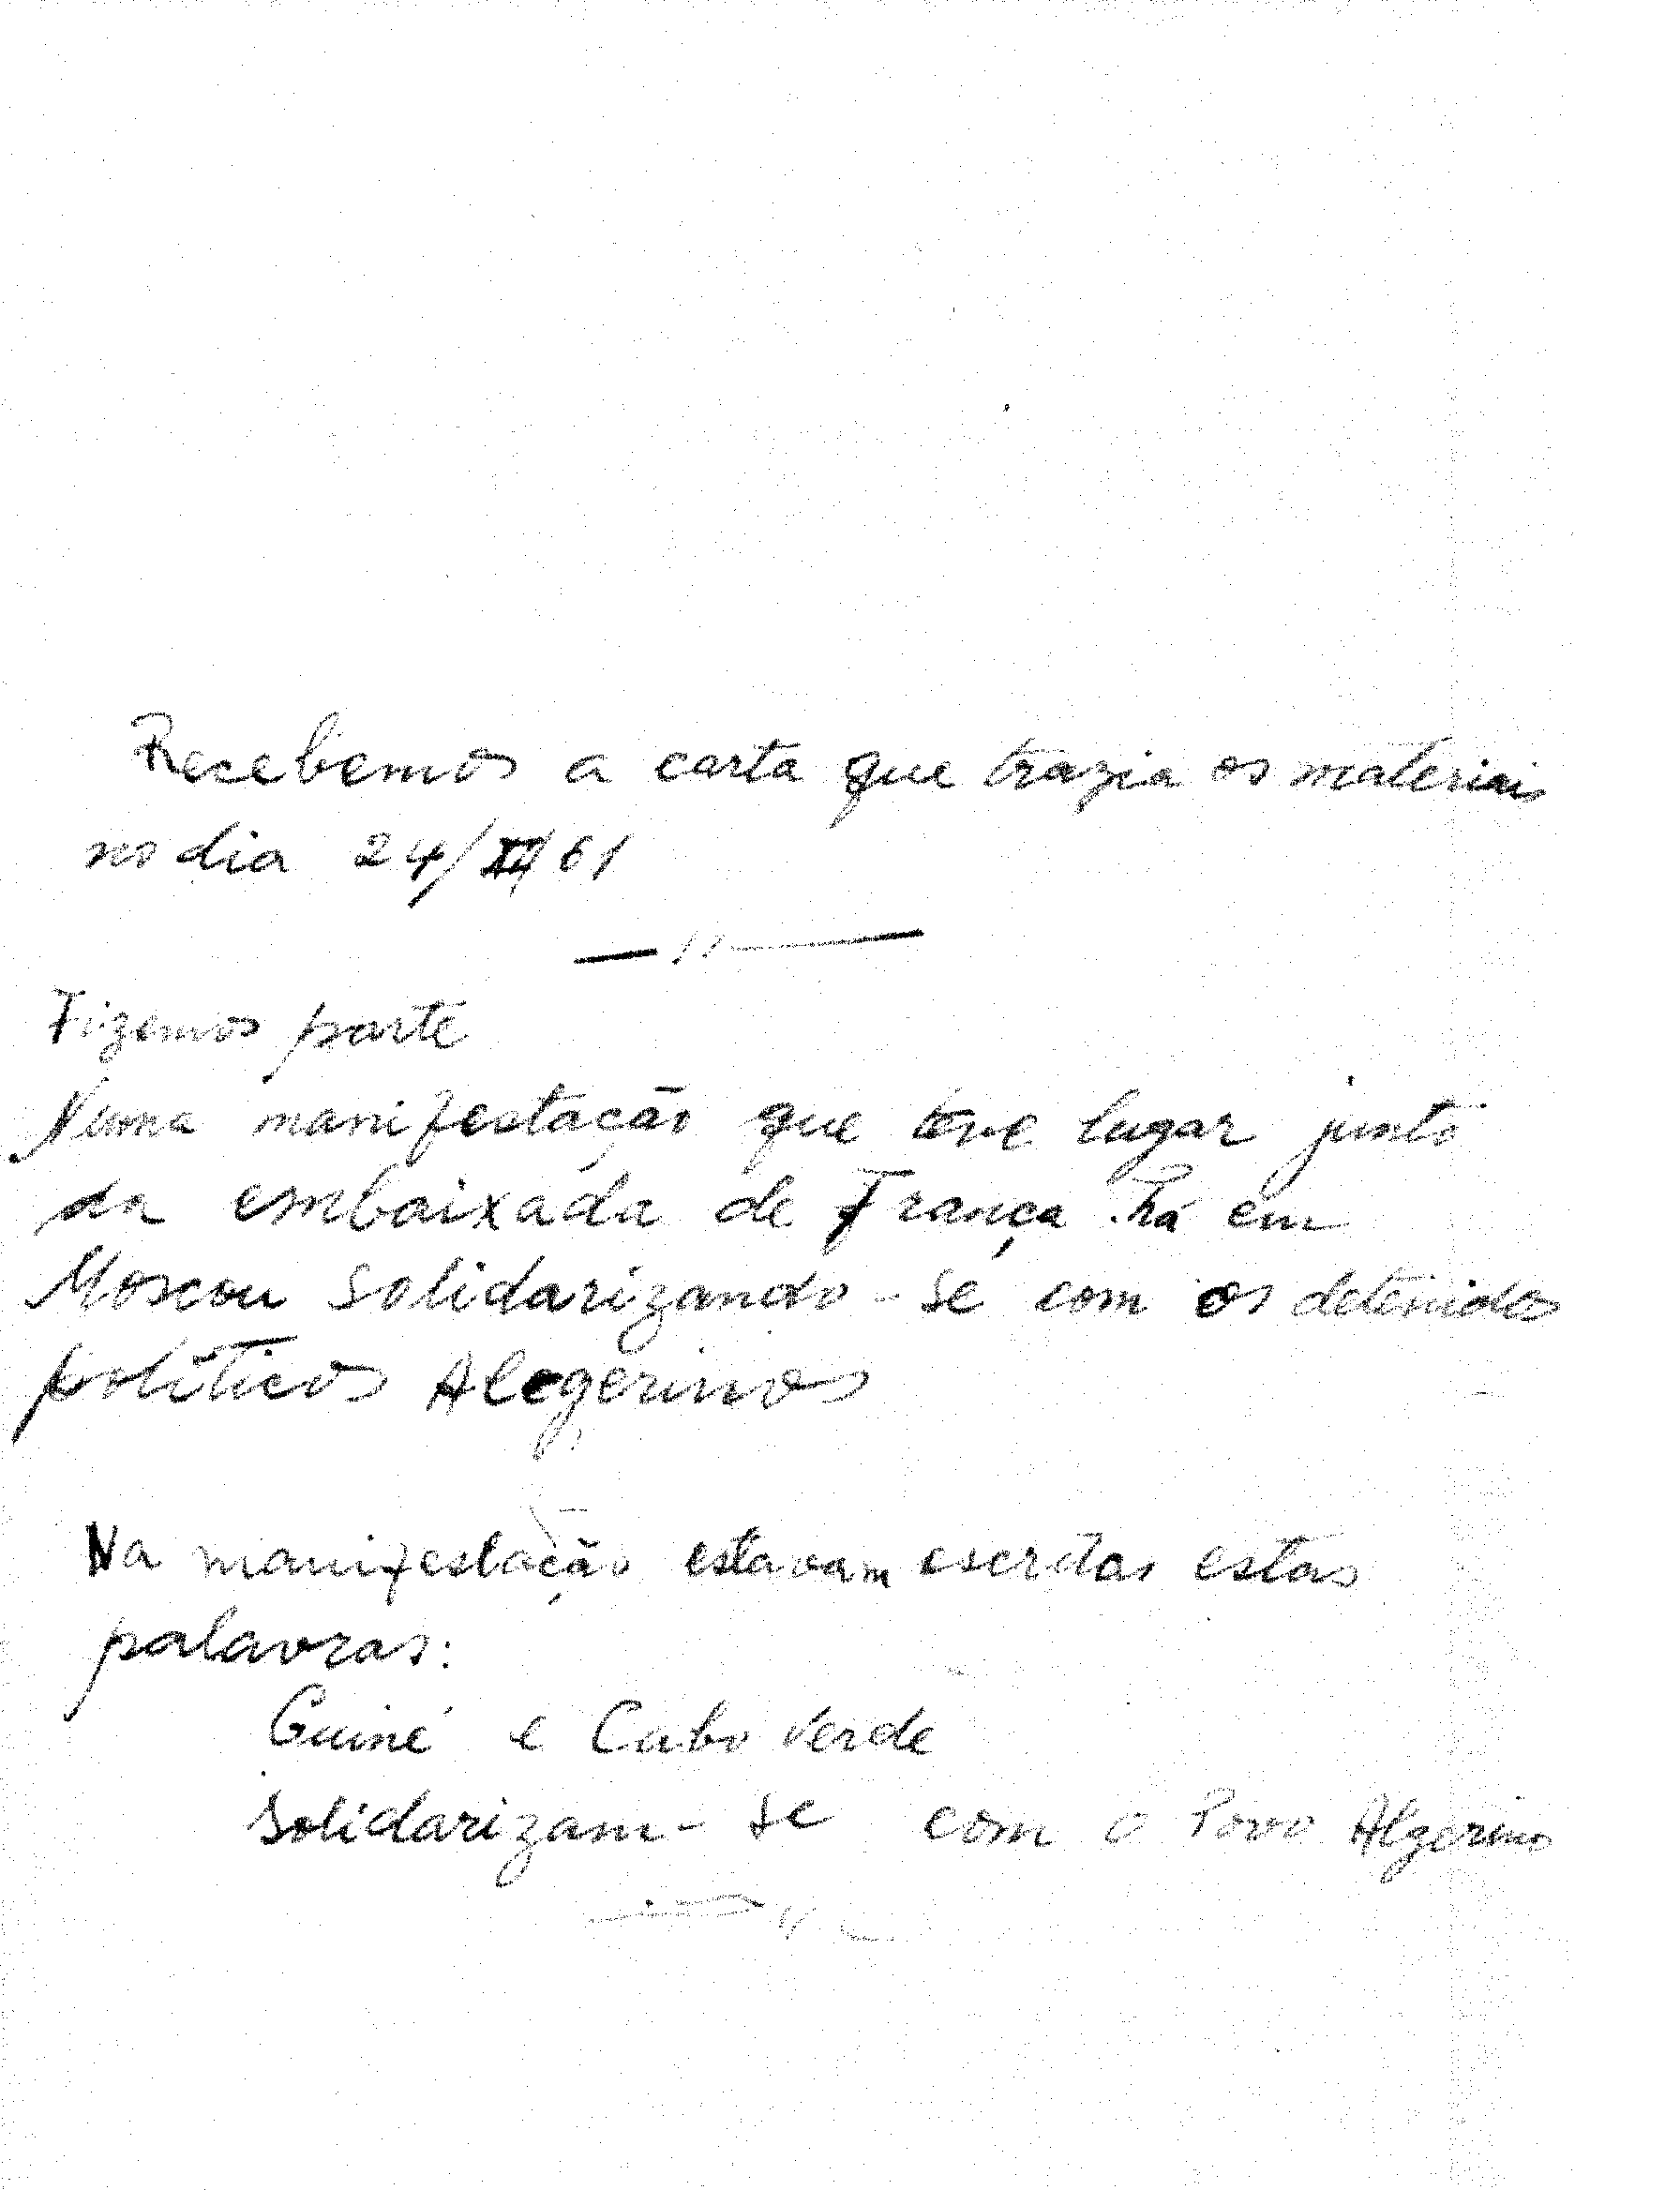 Recebemos a carta que trazia os materiais
no dia 24/XII/61
Fizemos parte
Numa manifestação que teve lugar junto
da embaixada de França há em
Moscou solidarizando-se com os detenidos
políticos Alegerinos
Na manifestação estavam escritas estas
palavras:
Guiné e Cabo Verde
Solidarizam-se com o Povo Algerino